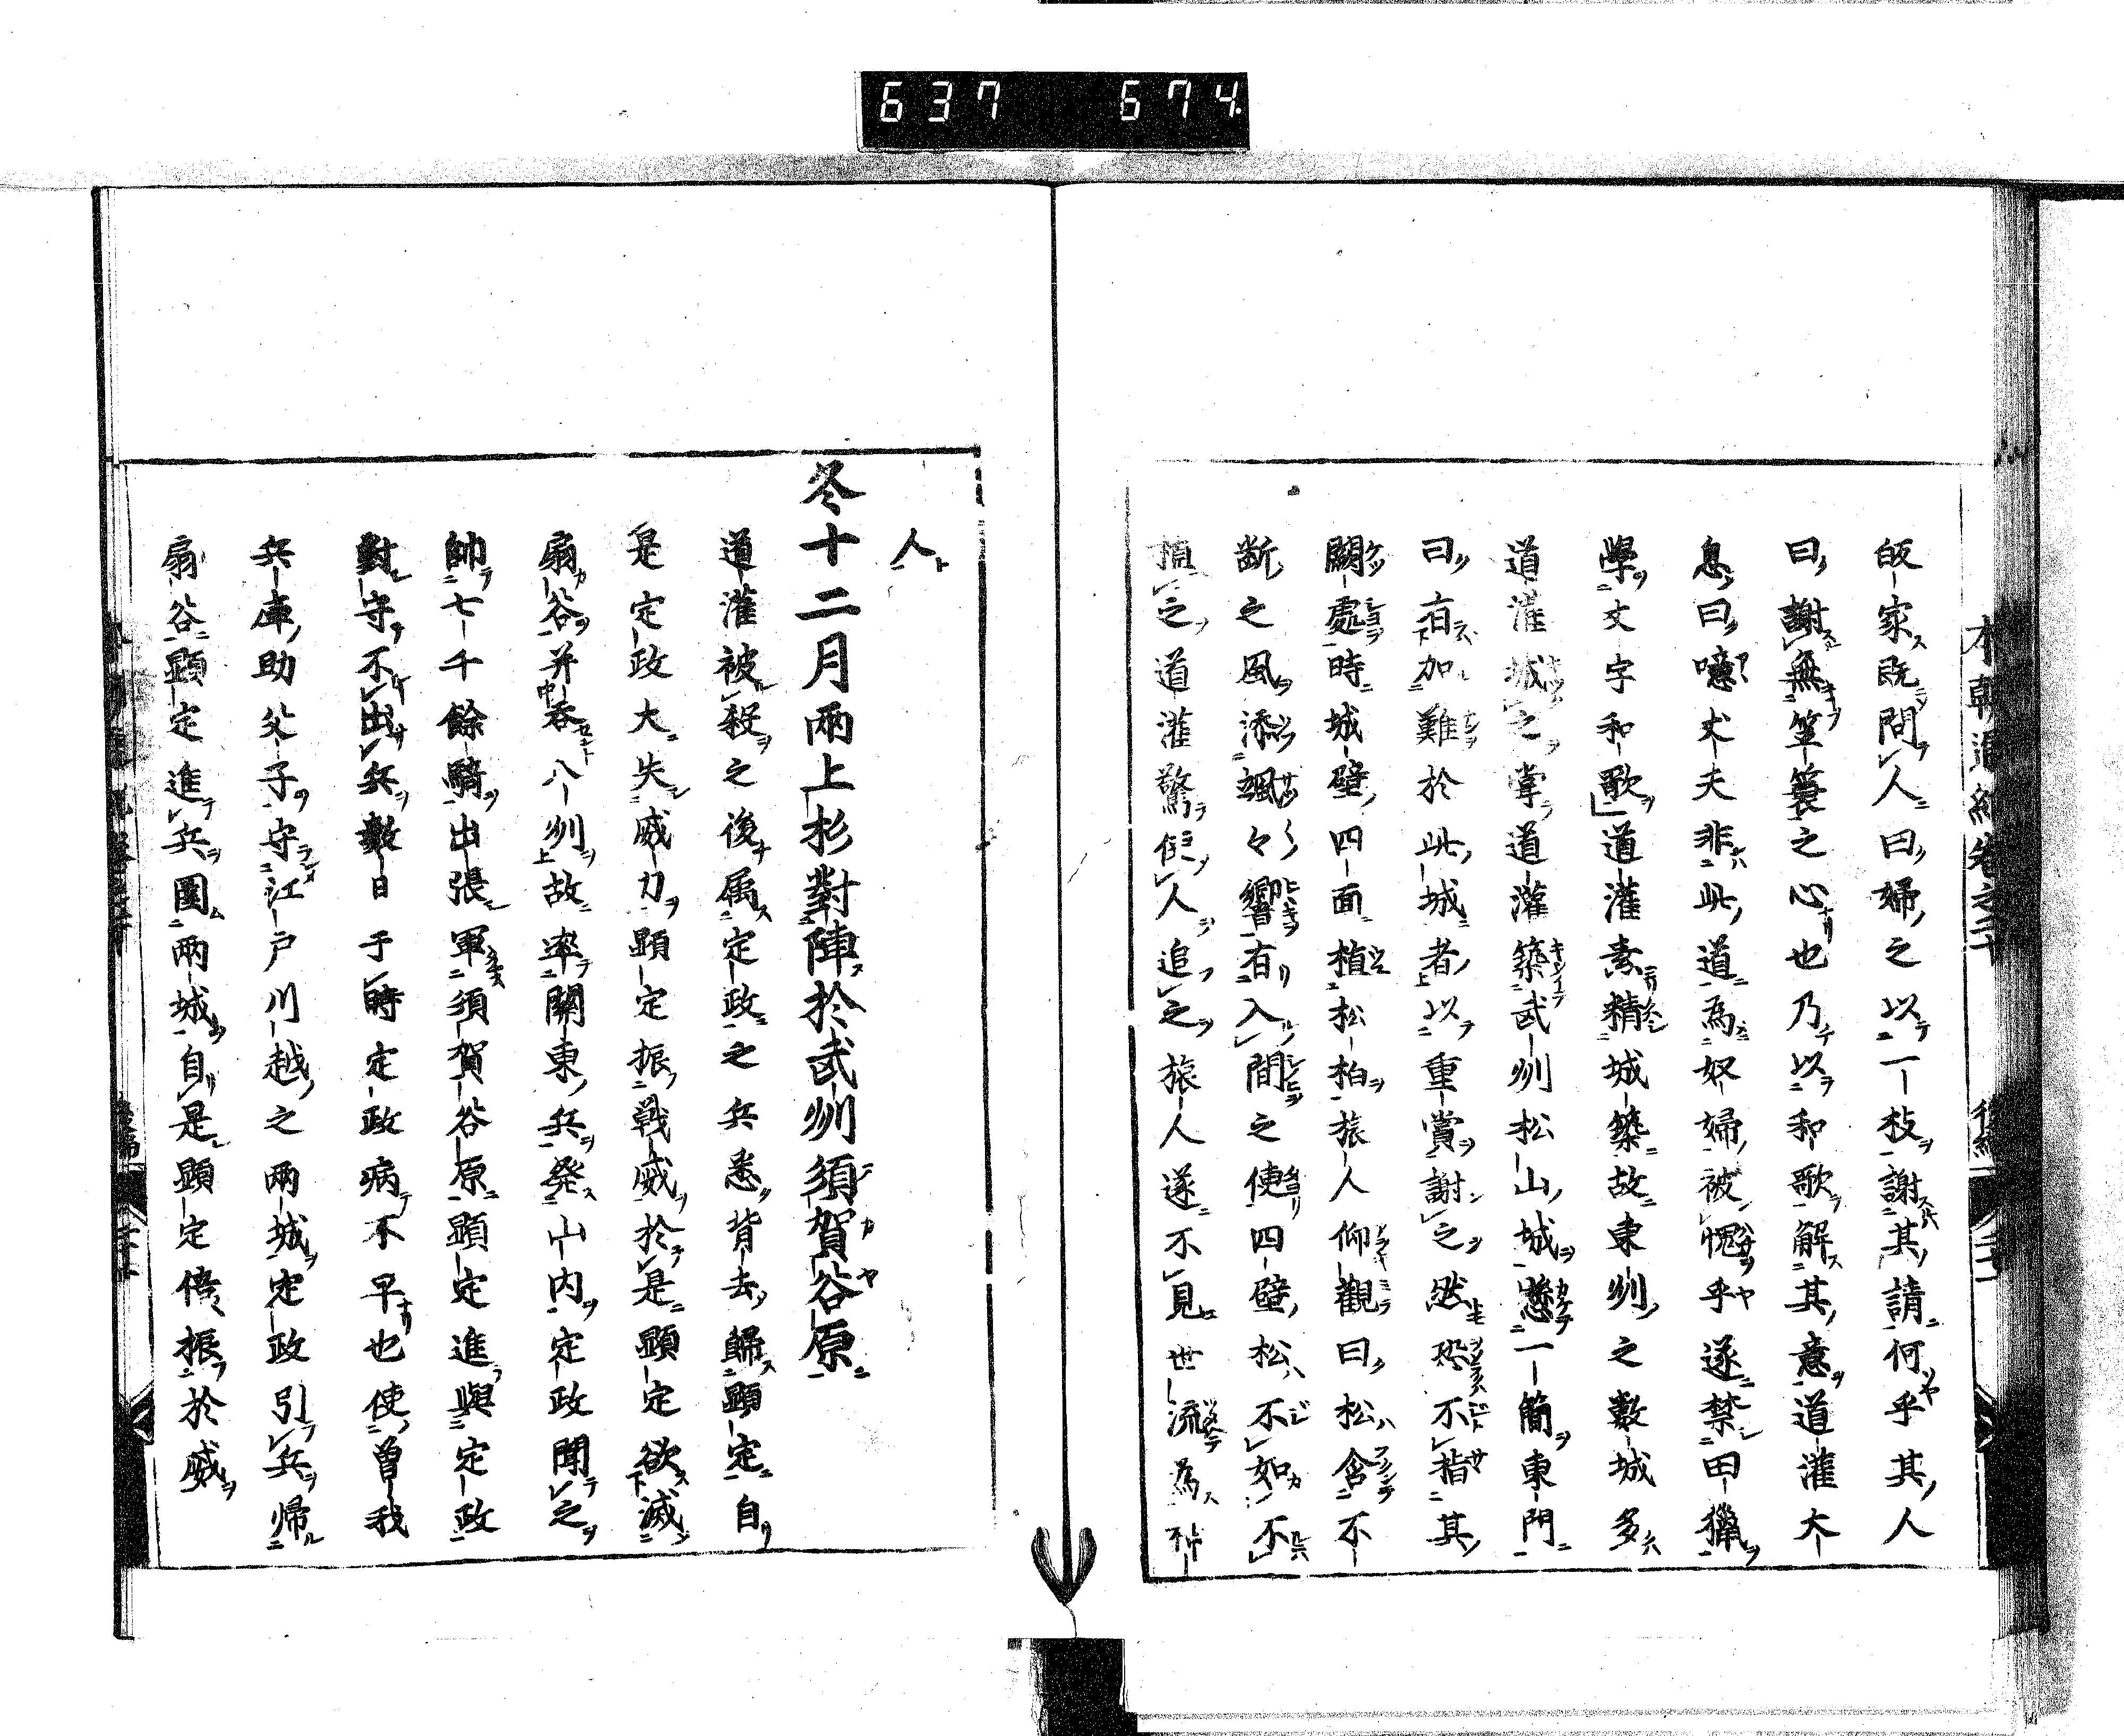 637 674
本朝通紀卷之二十 後編
皈家既問人曰婦之以一枝謝其請何乎其人
曰謝無笠簑之心也乃以和歌解其意道灌大
息曰噫丈夫非此道為奴婦被愧乎遂禁田獵
學文字和歌道灌素精城築故東州之數城多
道灌城之掌道灌築武州松山城懸一簡東門
曰有加難於此城者以重賞謝之然恐不指其
闕處時城壁四面植松柏旅人仰觀曰松含不
斷之風添颯々響有入間之使四壁松不如不
植之道灌驚使人追之旅人遂不見世流為神
人
冬十二月兩上杉對陣於武州須賀谷原
道灌被殺之後属定政之兵悉背去歸顕定自
是定政大失威力顕定振戰威於是顕定欲滅
扇谷并吞八州故率關東兵発山内定政聞之
帥七千餘騎出張軍須賀谷原顕定進與定政
對守不出兵數日于時定政病不早也使曽我
兵庫助父子守江戸川越之兩城定政引兵帰
扇谷顕定進兵圍兩城自是顕定倍振於威